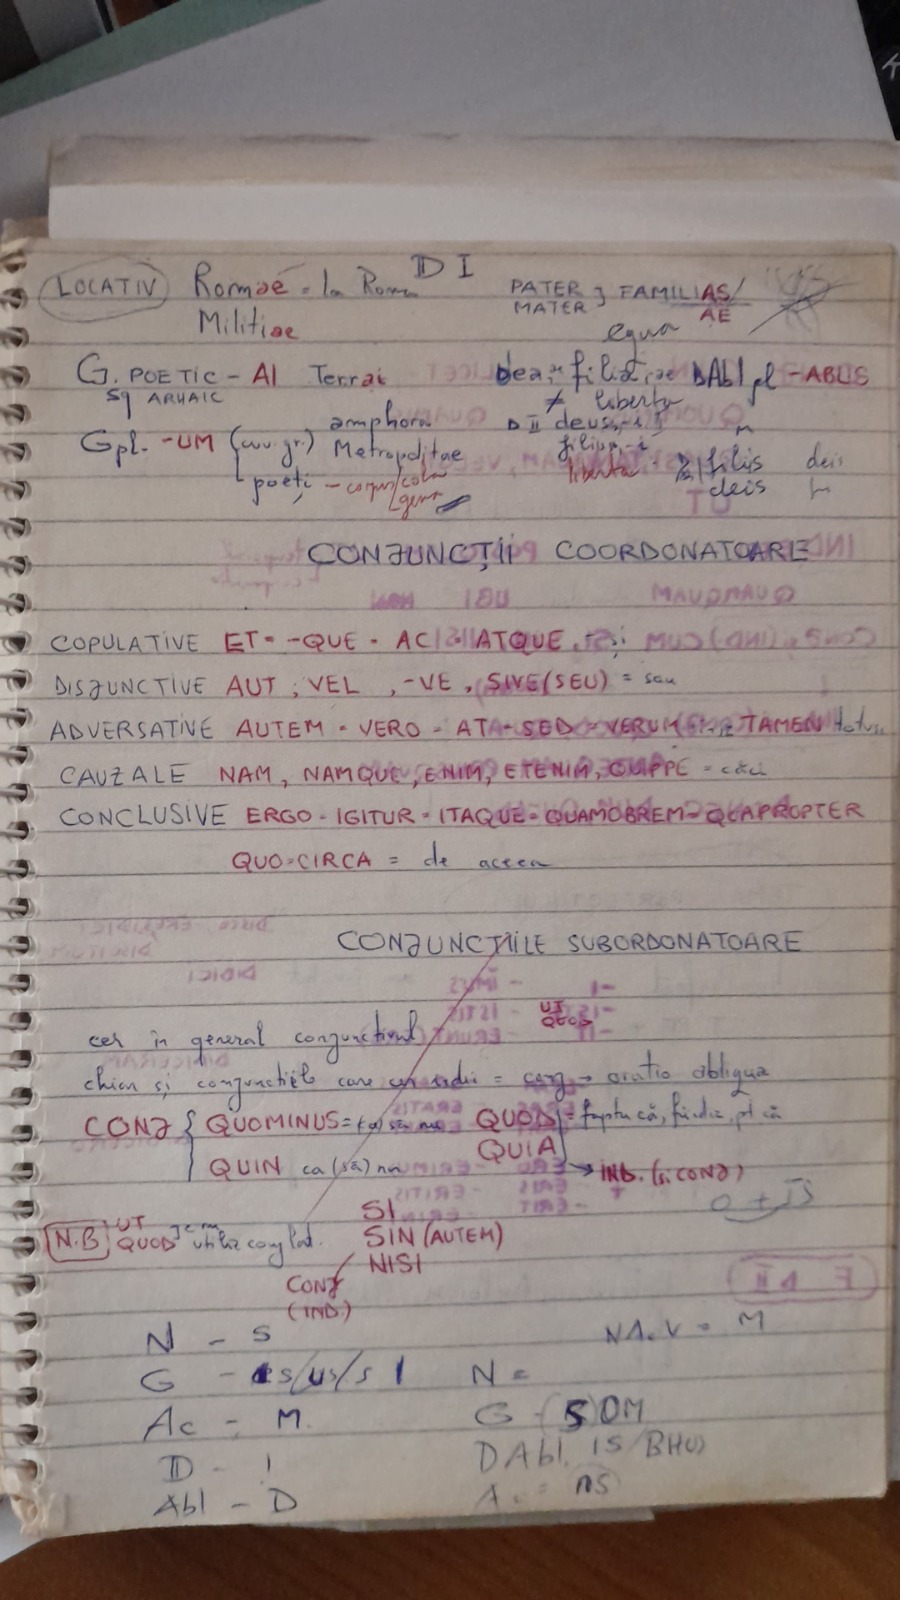 D I
LOCATIV Romae = la Roma PATER } FAMILIAS/
Militiae MATER AE
equa
G. POETIC - AI Terrai dea, filia DAbl pl -ABUS
ȘI ARHAIC ≠ liberta
amphora D II deus
Gpl. -UM (cuv. gr.) Metropolitae filius
poeți liberta filiis deis
deis
CONJUNCȚII COORDONATOARE
COPULATIVE ET = -QUE = AC ATQUE = și
DISJUNCTIVE AUT, VEL, -VE, SIVE (SEU) = sau
ADVERSATIVE AUTEM - VERO - AT - SED - VERUM TAMEN totuși
CAUZALE NAM, NAMQUE, ENIM, ETENIM, QUIPPE = căci
CONCLUSIVE ERGO - IGITUR - ITAQUE - QUAMOBREM - QUAPROPTER
QUO-CIRCA = de aceea
CONJUNCȚIILE SUBORDONATOARE
UT
cer în general conjunctivul QUOD
chiar și conjuncțiile care cer indic = conj → oratio obliqua
CONJ { QUOMINUS = ca să nu QUOD = faptu că, fiindcă, pt că
QUIN ca (să) nu QUIA → IND. (și CONJ)
O + IS
SI
N.B UT SIN (AUTEM)
QUOD NISI
CONJ
(IND.)
N - S NA.V = M
G - is/us/s N =
Ac - M G (S)OM
D - I DAbl. IS/BHU)
Abl - D A = ns